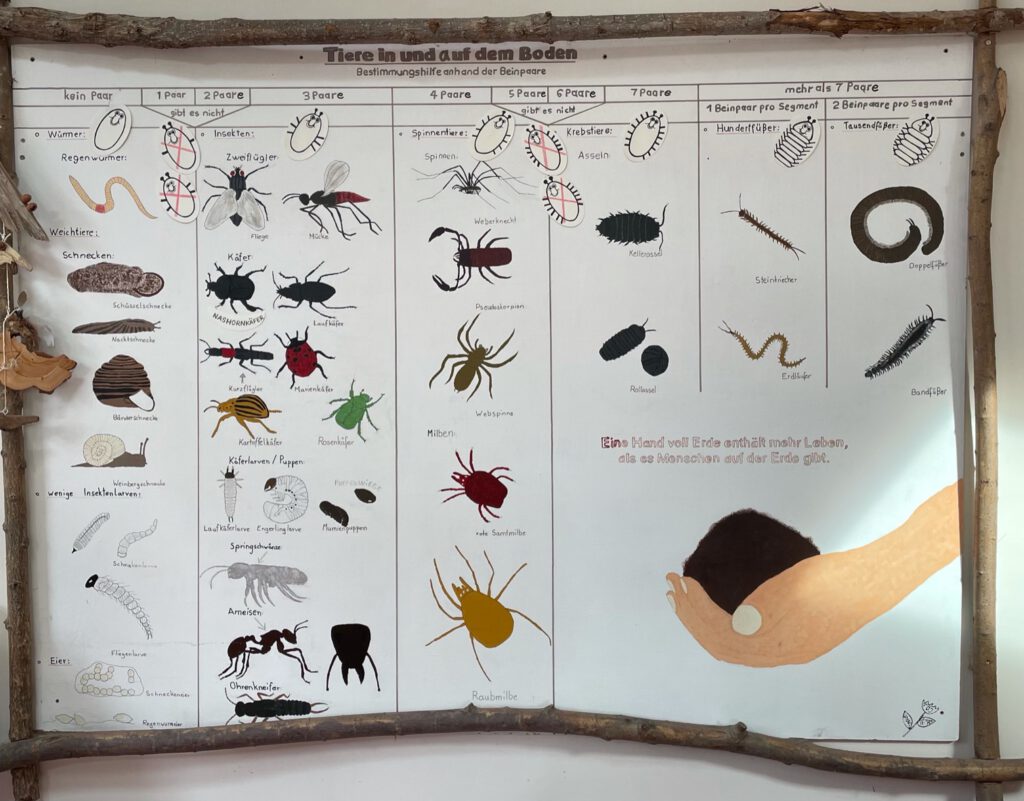 Tiere in und auf dem Boden
Bestimmungshilfe anhand der Beinpaare
kein Paar
1 Paar
2 Paare
gibt es nicht
3 Paare
4 Paare
5 Paare
6 Paare
gibt es nicht
7 Paare
mehr als 7 Paare
1 Beinpaar pro Segment
2 Beinpaare pro Segment
Würmer:
Regenwürmer
Weichtiere:
Schnecken:
Schüsselschnecke
Nacktschnecke
Bänderschnecke
Weinbergschnecke
wenige Insektenlarven:
Schnakenlarve
Fliegenlarve
Eier:
Schneckeneier
Regenwurmeier
Insekten:
Zweiflügler:
Fliege
Mücke
Käfer:
NASHORNKÄFER
Laufkäfer
Kurzflügler
Marienkäfer
Kartoffelkäfer
Rosenkäfer
Käferlarven / Puppen:
Laufkäferlarve
Engerlinglarve
Mumienpuppen
Springschwänze
Ameisen:
Ohrenkneifer:
Spinnentiere:
Spinnen:
Weberknecht
Pseudoskorpion
Webspinne
Milben:
rote Samtmilbe
Raubmilbe
Krebstiere:
Asseln:
Kellerassel
Rollassel
Hundertfüßer:
Steinkriecher
Erdläufer
Tausendfüßer:
Doppelfüßer
Bandfüßer
Eine Hand voll Erde enthält mehr Leben,
als es Menschen auf der Erde gibt.